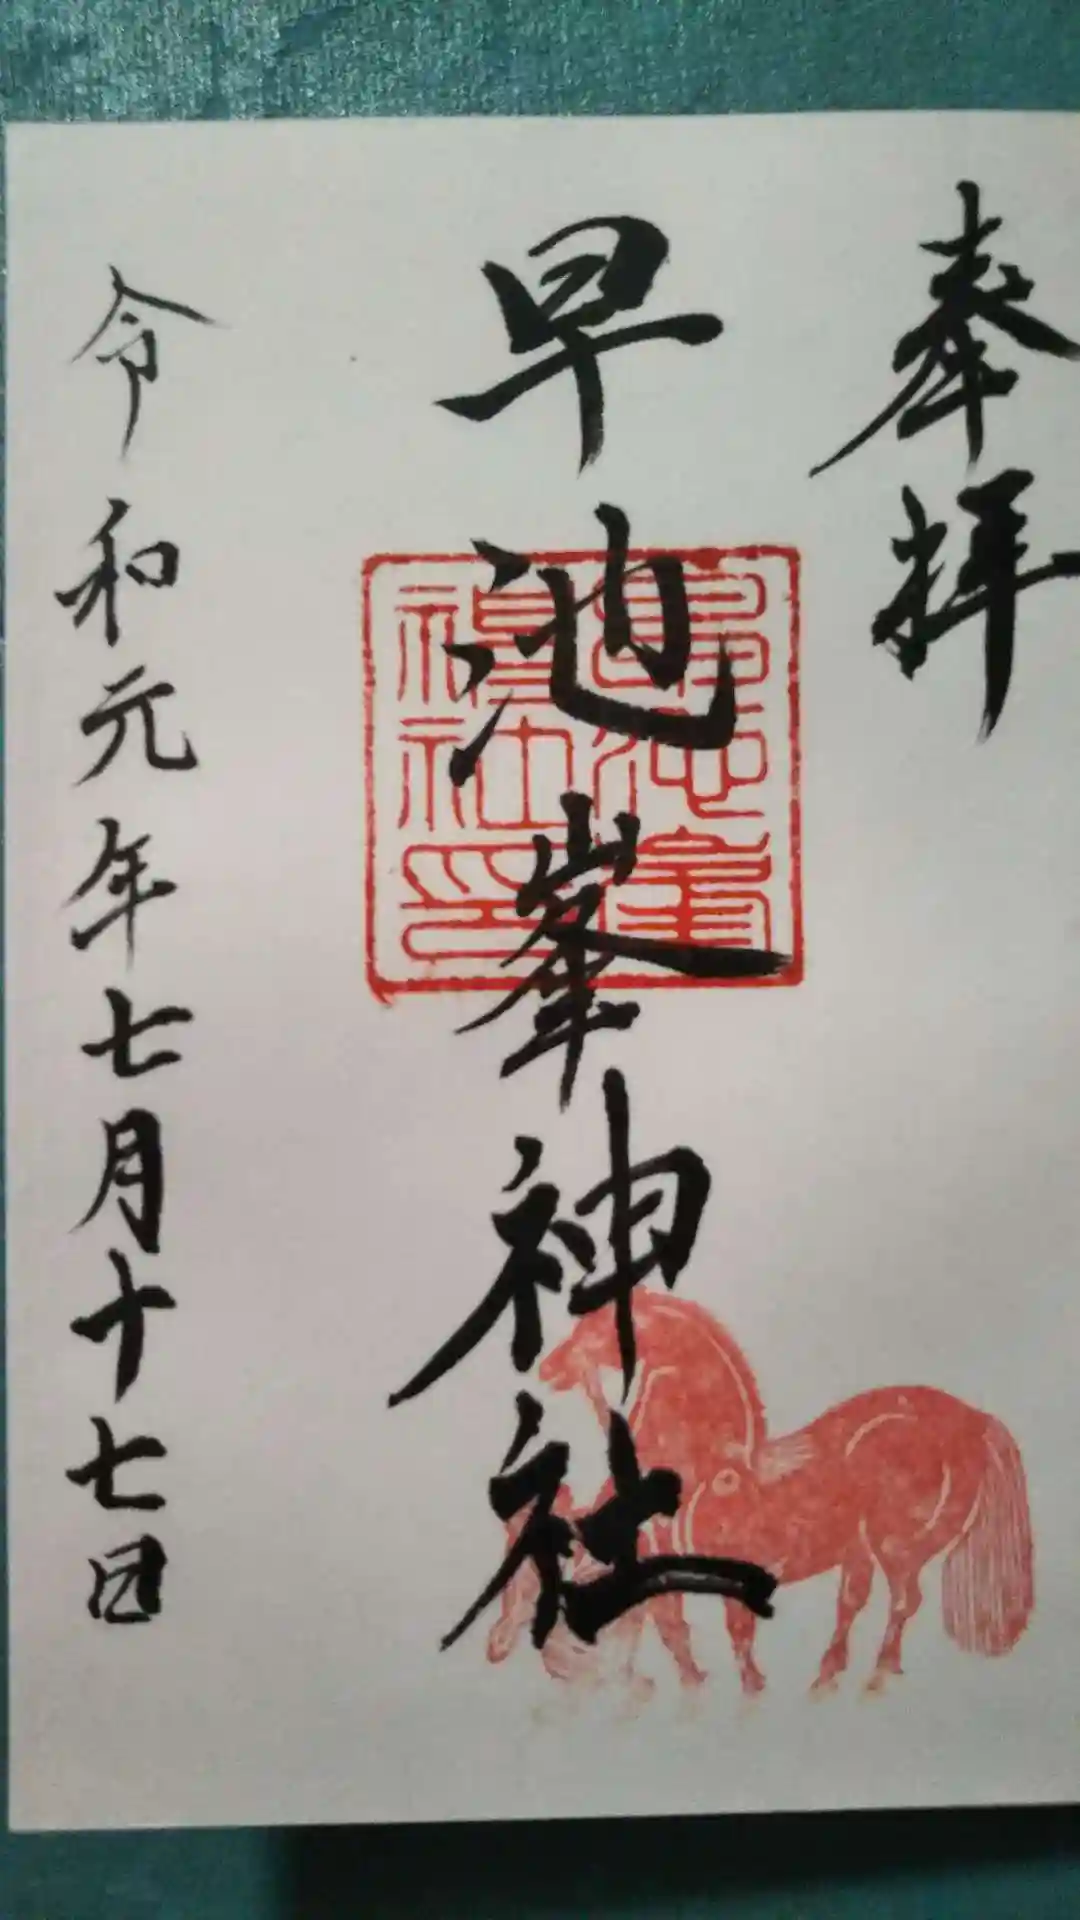 奉拝
早池峯神社
早池峯
神社印
令和元年七月十七日